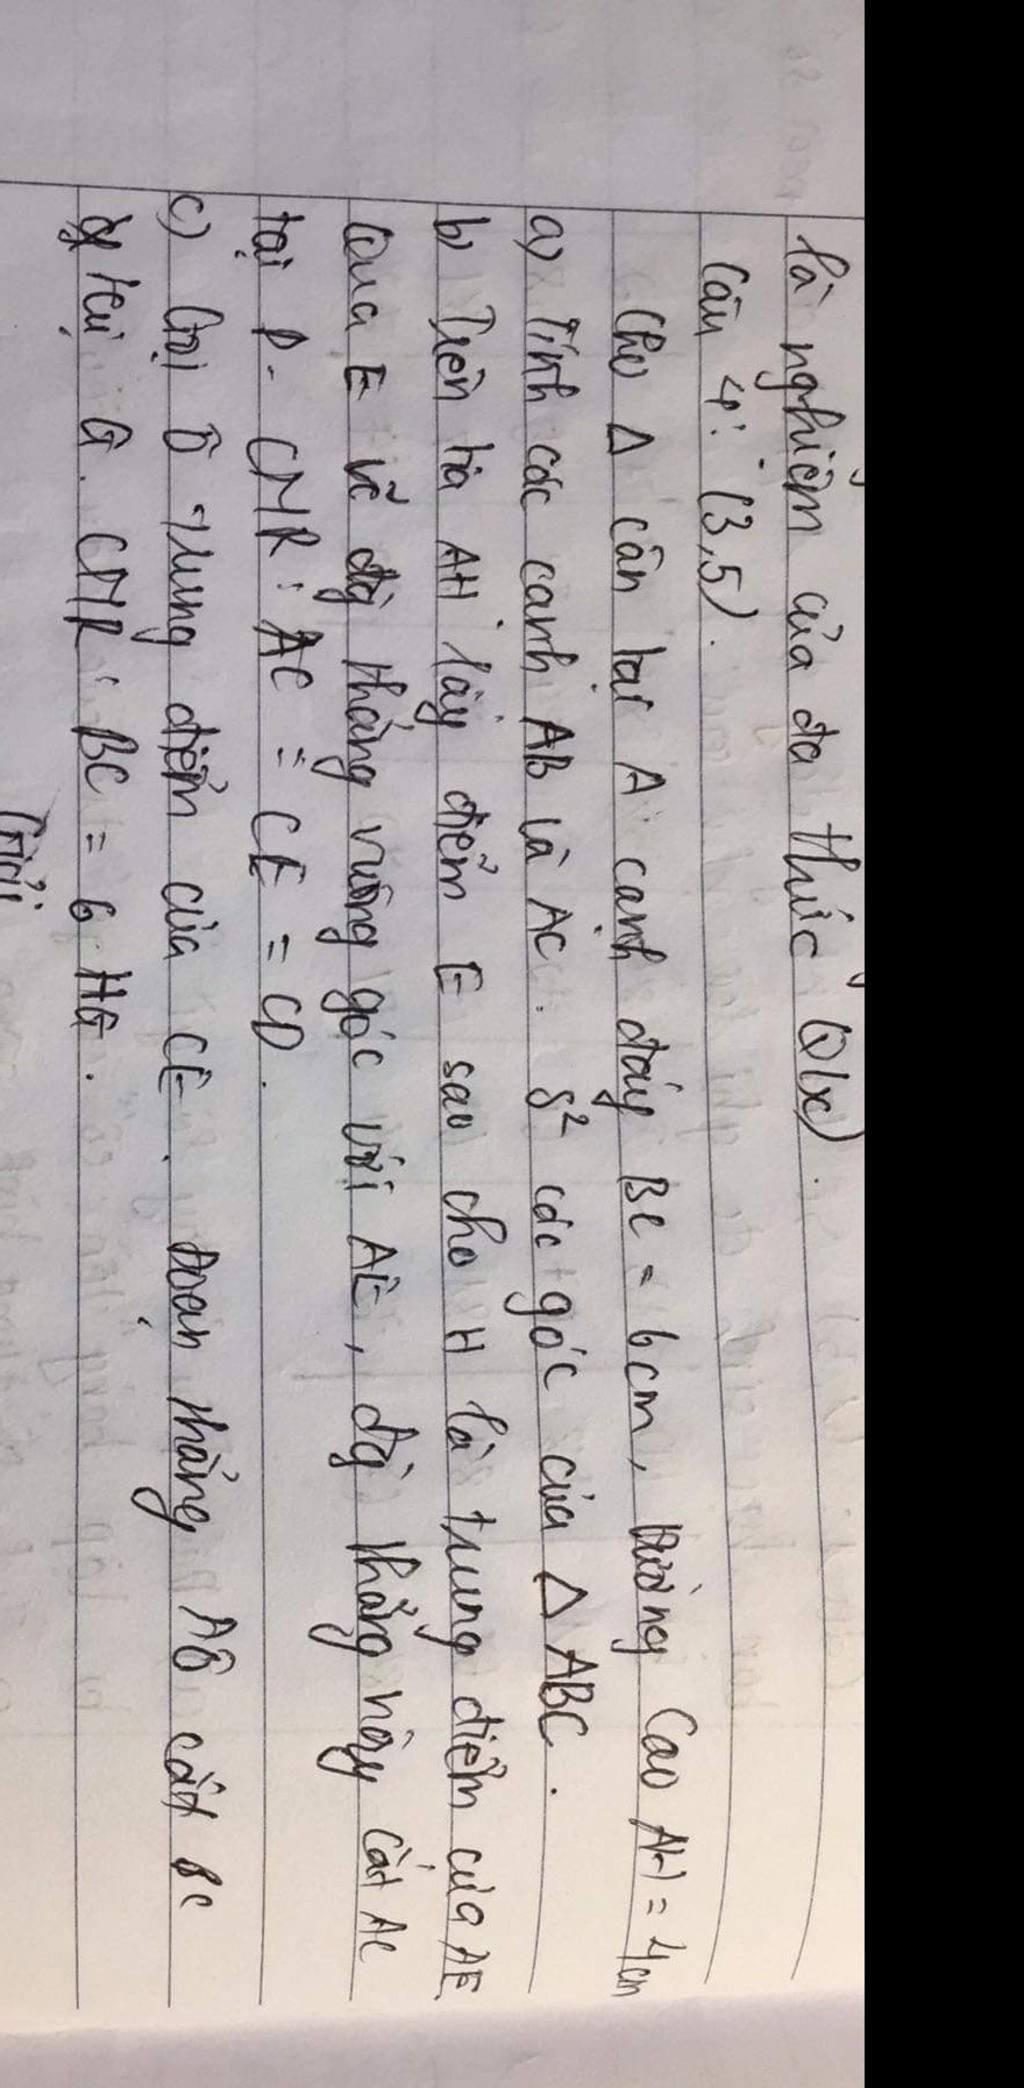 là nghiệm của đa thức Q(x).
Câu 4: (3,5).
Cho Δ cân tại A cạnh đáy BC = 6cm, đường cao AH = 4cm
a) Tính các cạnh AB và AC. S² các góc của Δ ABC.
b) Trên tia AH lấy điểm E sao cho H là trung điểm của AE.
Qua E vẽ đg thẳng vuông góc với AE, đg thẳng này cắt AC
tại D. CMR: AC = CE = CD.
c) Gọi O trung điểm của CE. Đoạn thẳng AO cắt BC
tại G. CMR: BC = 6 HG.
Giải